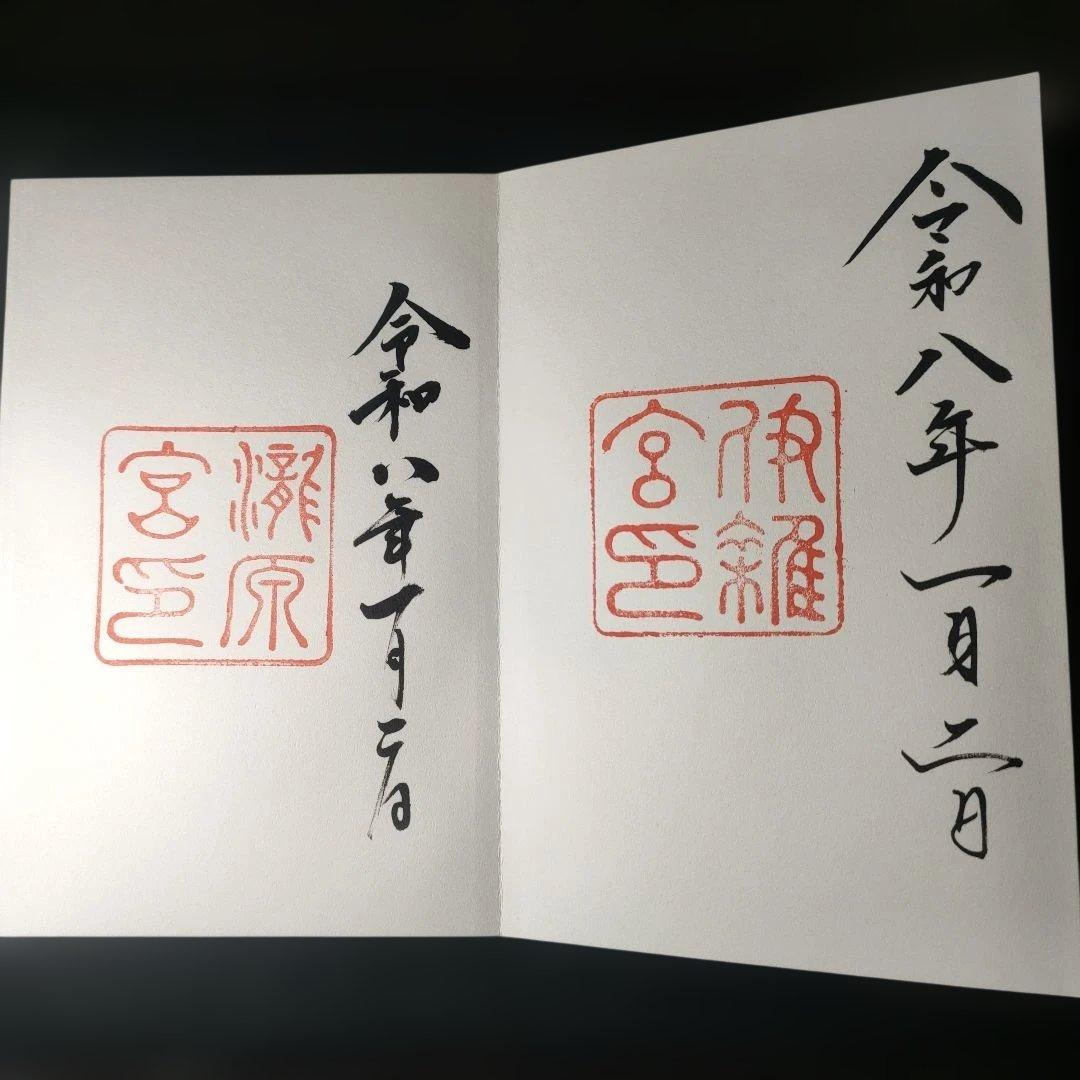 令和八年一月二日
伊雜
宮印
令和八年一月二日
瀧原
宮印